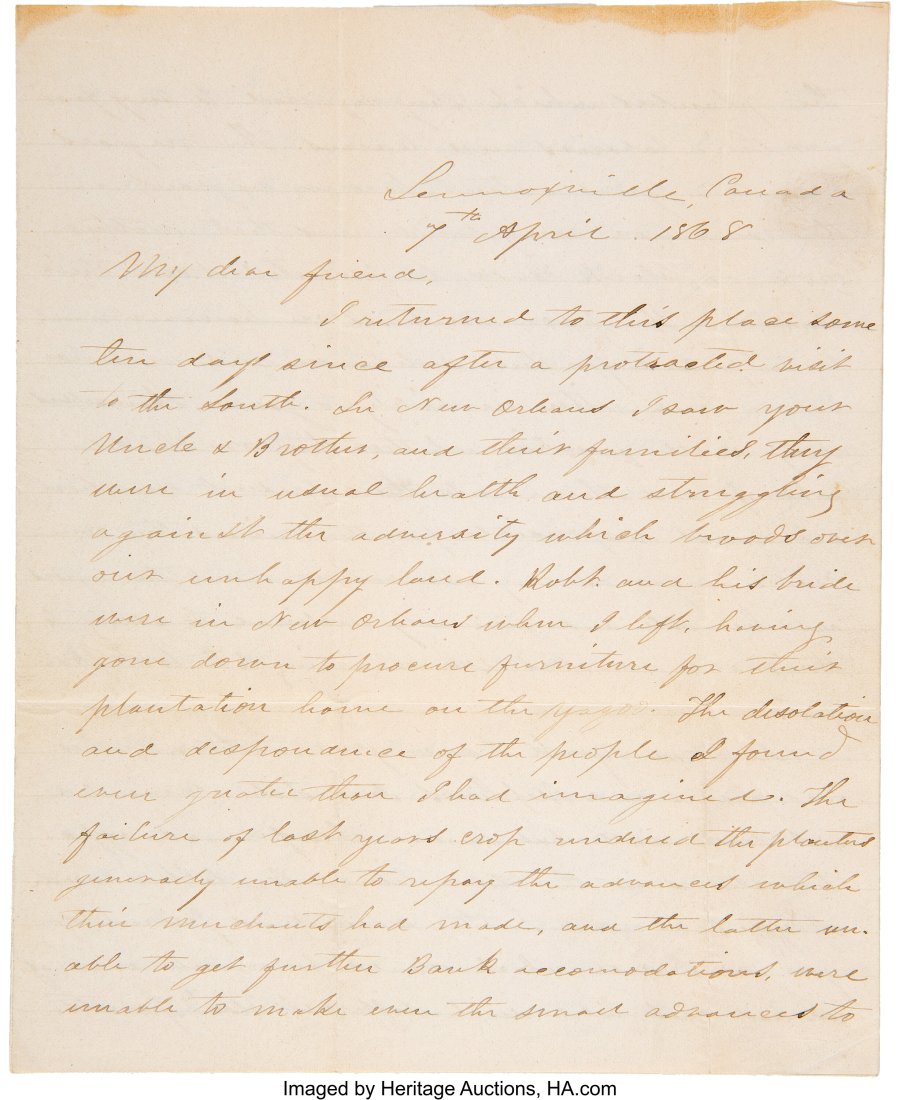 Lennoxville, Canada
7th April. 1868.
My dear friend,
I returned to this place some
ten days since after a protracted visit
to the South. In New Orleans I saw your
Uncle & Brother, and their families, they
were in usual health and struggling
against the adversity which broods over
our unhappy land. Robt. and his bride
were in New Orleans when I left, having
gone down to procure furniture for their
plantation home on the Yazoo. The desolation
and despondence of the people I found
even greater than I had imagined. The
failure of last years crop rendered the planters
generally unable to repay the advances which
their merchants had made, and the latter un-
able to get further Bank accomodations, were
unable to make even the small advances to
Imaged by Heritage Auctions, HA.com